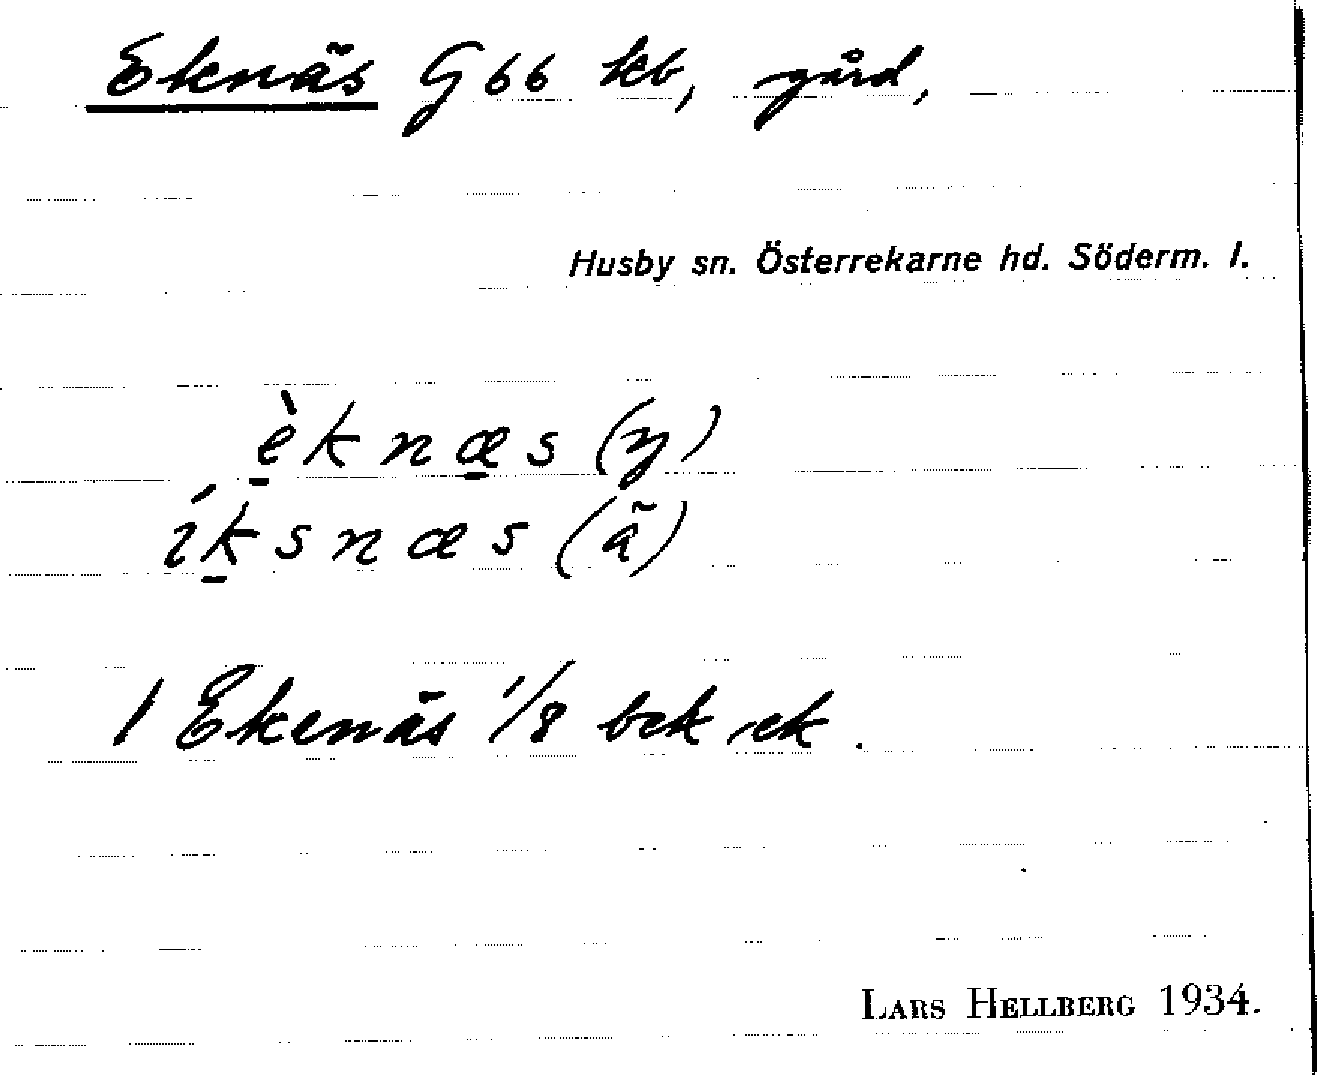 Eknäs G 66 kb, gård,
Husby sn. Österrekarne hd. Söderm. l.
èknæs (y)
íksnæs (ã)
1 Ekenäs 1/8 bek ek.
LARS HELLBERG 1934.